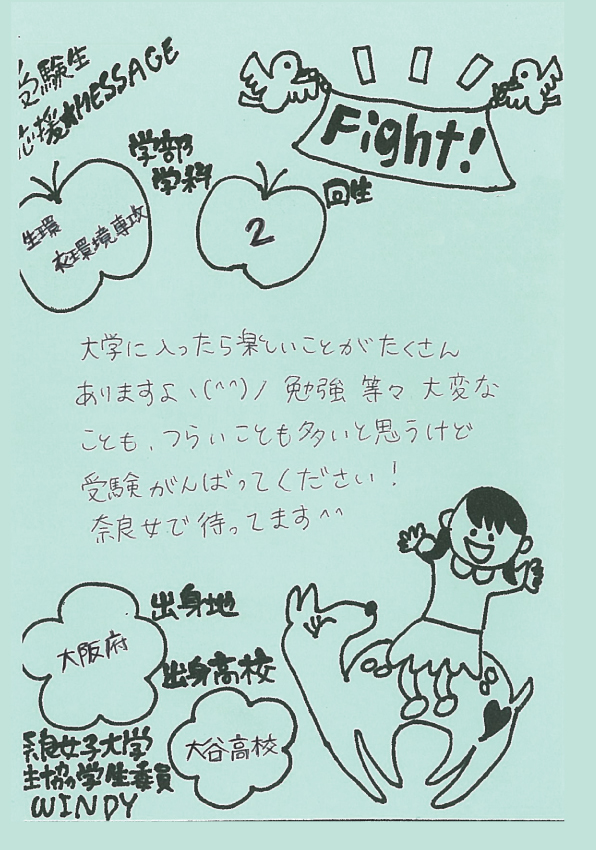 受験生
応援★MESSAGE
Fight!
学部
学科
生環
衣環境専攻
2
回生
大学に入ったら楽しいことがたくさん
ありますよヽ(^^)ノ 勉強 等々 大変な
ことも、つらいことも多いと思うけど
受験がんばってください!
奈良女で待ってます^^
出身地
大阪府
出身高校
大谷高校
奈良女子大学
生協の学生委員
WINDY